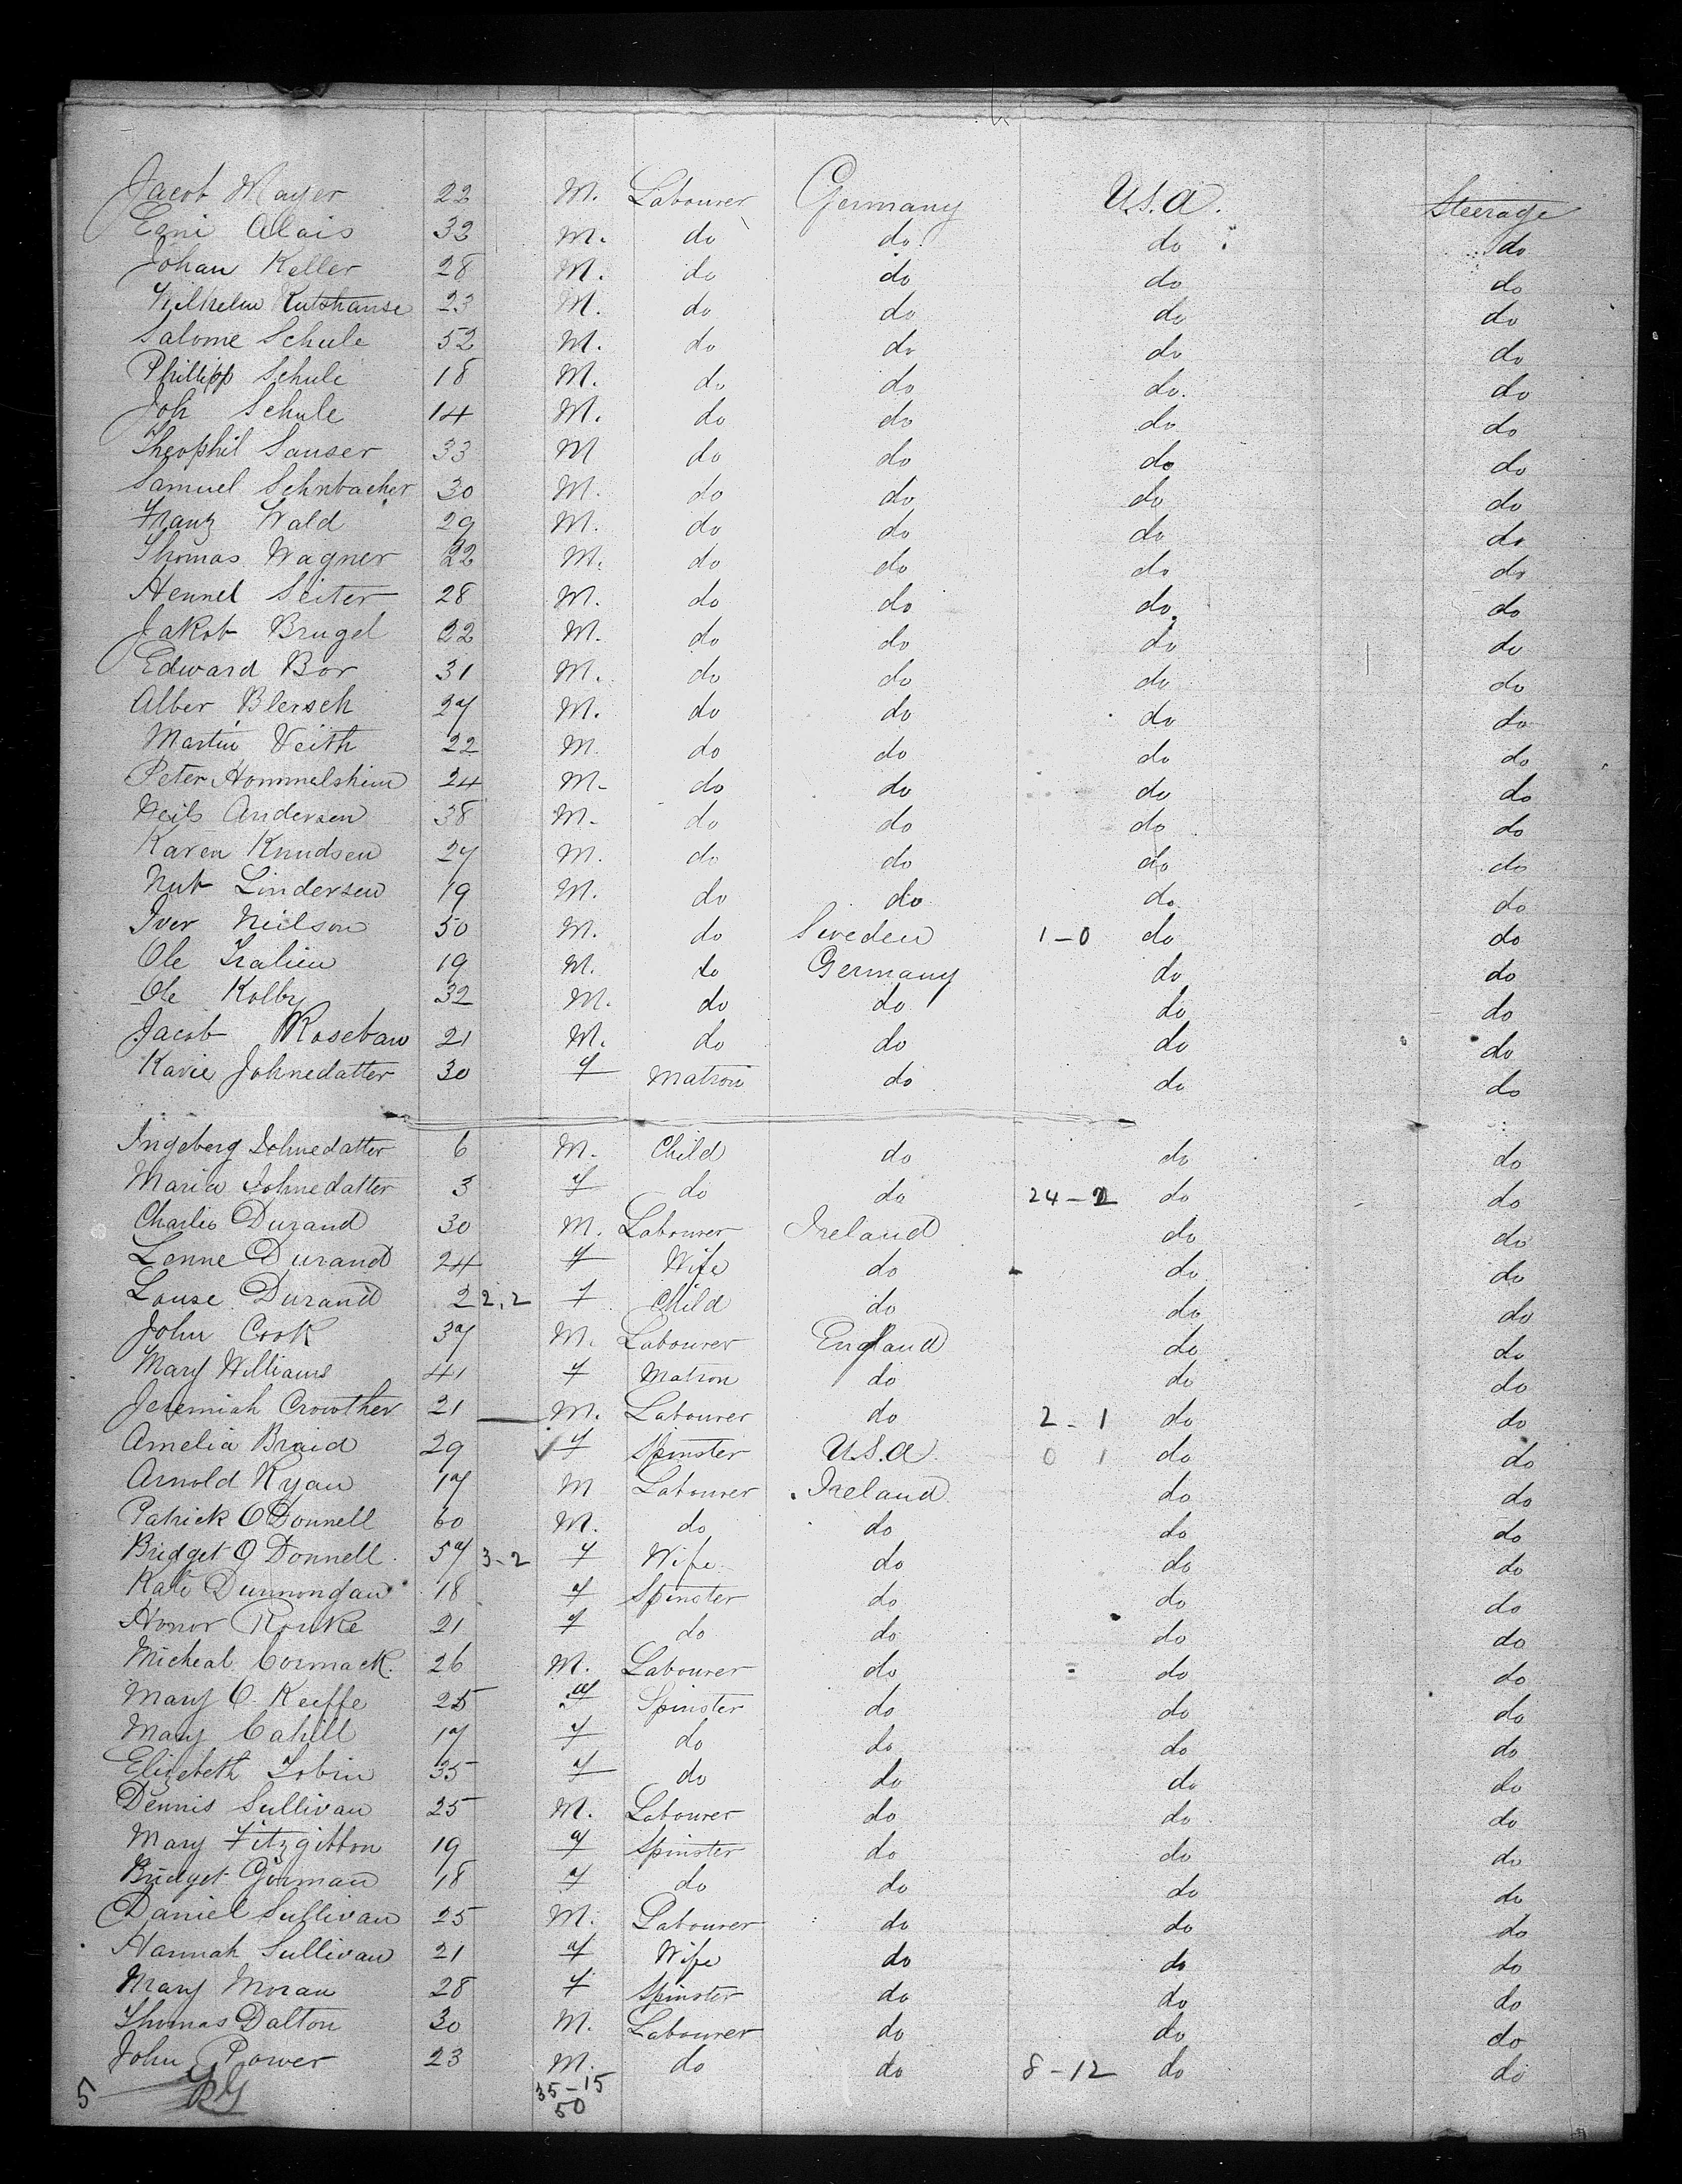 Jacob Mayer 22 M. Labourer Germany U.S.A. Steerage
Egni Alais 32 M. do do. do do
Johan Keller 28 M. do do do do
Wilhelm Kutshause 23 M. do do do do
Salome Schule 52 M. do do do do
Phillipp Schule 18 M. do do do. do
Joh Schule 14 M. do do do do
Theophil Sauser 33 M do do do do
Samuel Schnbacher 30 M. do do do do
Franz Wald 29 M. do do do do
Thomas Wagner 22 M. do do do do
Hennel Seiter 28 M. do do do do
Jakob Brugel 22 M. do do do do
Edward Bor 31 M. do do do do
Alber Blersch 27 M. do do do do
Martin Veith 22 M. do do do do
Peter Hommelsheim 24 M. do do do do
Neils Andersen 38 M. do do do do
Karen Knudsen 27 M. do do do do
Nut Lindersen 19 M. do do do do
Iver Neilson 50 M. do Sweden 1-0 do do
Ole Iralien 19 M. do Germany do do
Ole Kolby 32 M. do do do do
Jacob Rosebau 21 M. do do do do
Karie Johnedatter 30 f Matron do do do
Ingeberg Johnedatter 6 M. Child do do do
Maria Johnedatter 3 f do do 24-2 do do
Charlis Durand 30 M. Labourer Ireland do do
Lenne Durand 24 f Wife do do do
Louse Durand 2 2.2 f Child do do do
John Cook 37 M. Labourer England do do
Mary Williams 41 f Matron do do do
Jeremiah Crowther 21 M. Labourer do 2-1 do do
Amelia Braid 29 ✓ f Spinster U.S.A. 0 1 do do
Arnold Ryan 17 M Labourer Ireland do do
Patrick O'Donnell 60 M. do do do do
Bridget O Donnell. 57 3-2 f Wife do do do
Kate Dunnongan 18 f Spinster do do do
Honor Rouke 21 f do do do do
Micheal Cormack. 26 M. Labourer do do do
Mary O. Keiffe 25 f Spinster do do do
Mary Cahill 17 f do do do do
Elizebeth Tobin 35 f do do do do
Dennis Sullivan 25 M. Labourer do do do
Mary Fitzgibbon 19 f Spinster do do do
Bridget Gorman 18 f do do do do
Daniel Sullivan 25 M. Labourer do do do
Hannah Sullivan 21 f Wife do do do
Mary Moran 28 f Spinster do do do
Thomas Dalton 30 M. Labourer do do do
John Power 23 M. do do 8-12 do do
5 35-15
50